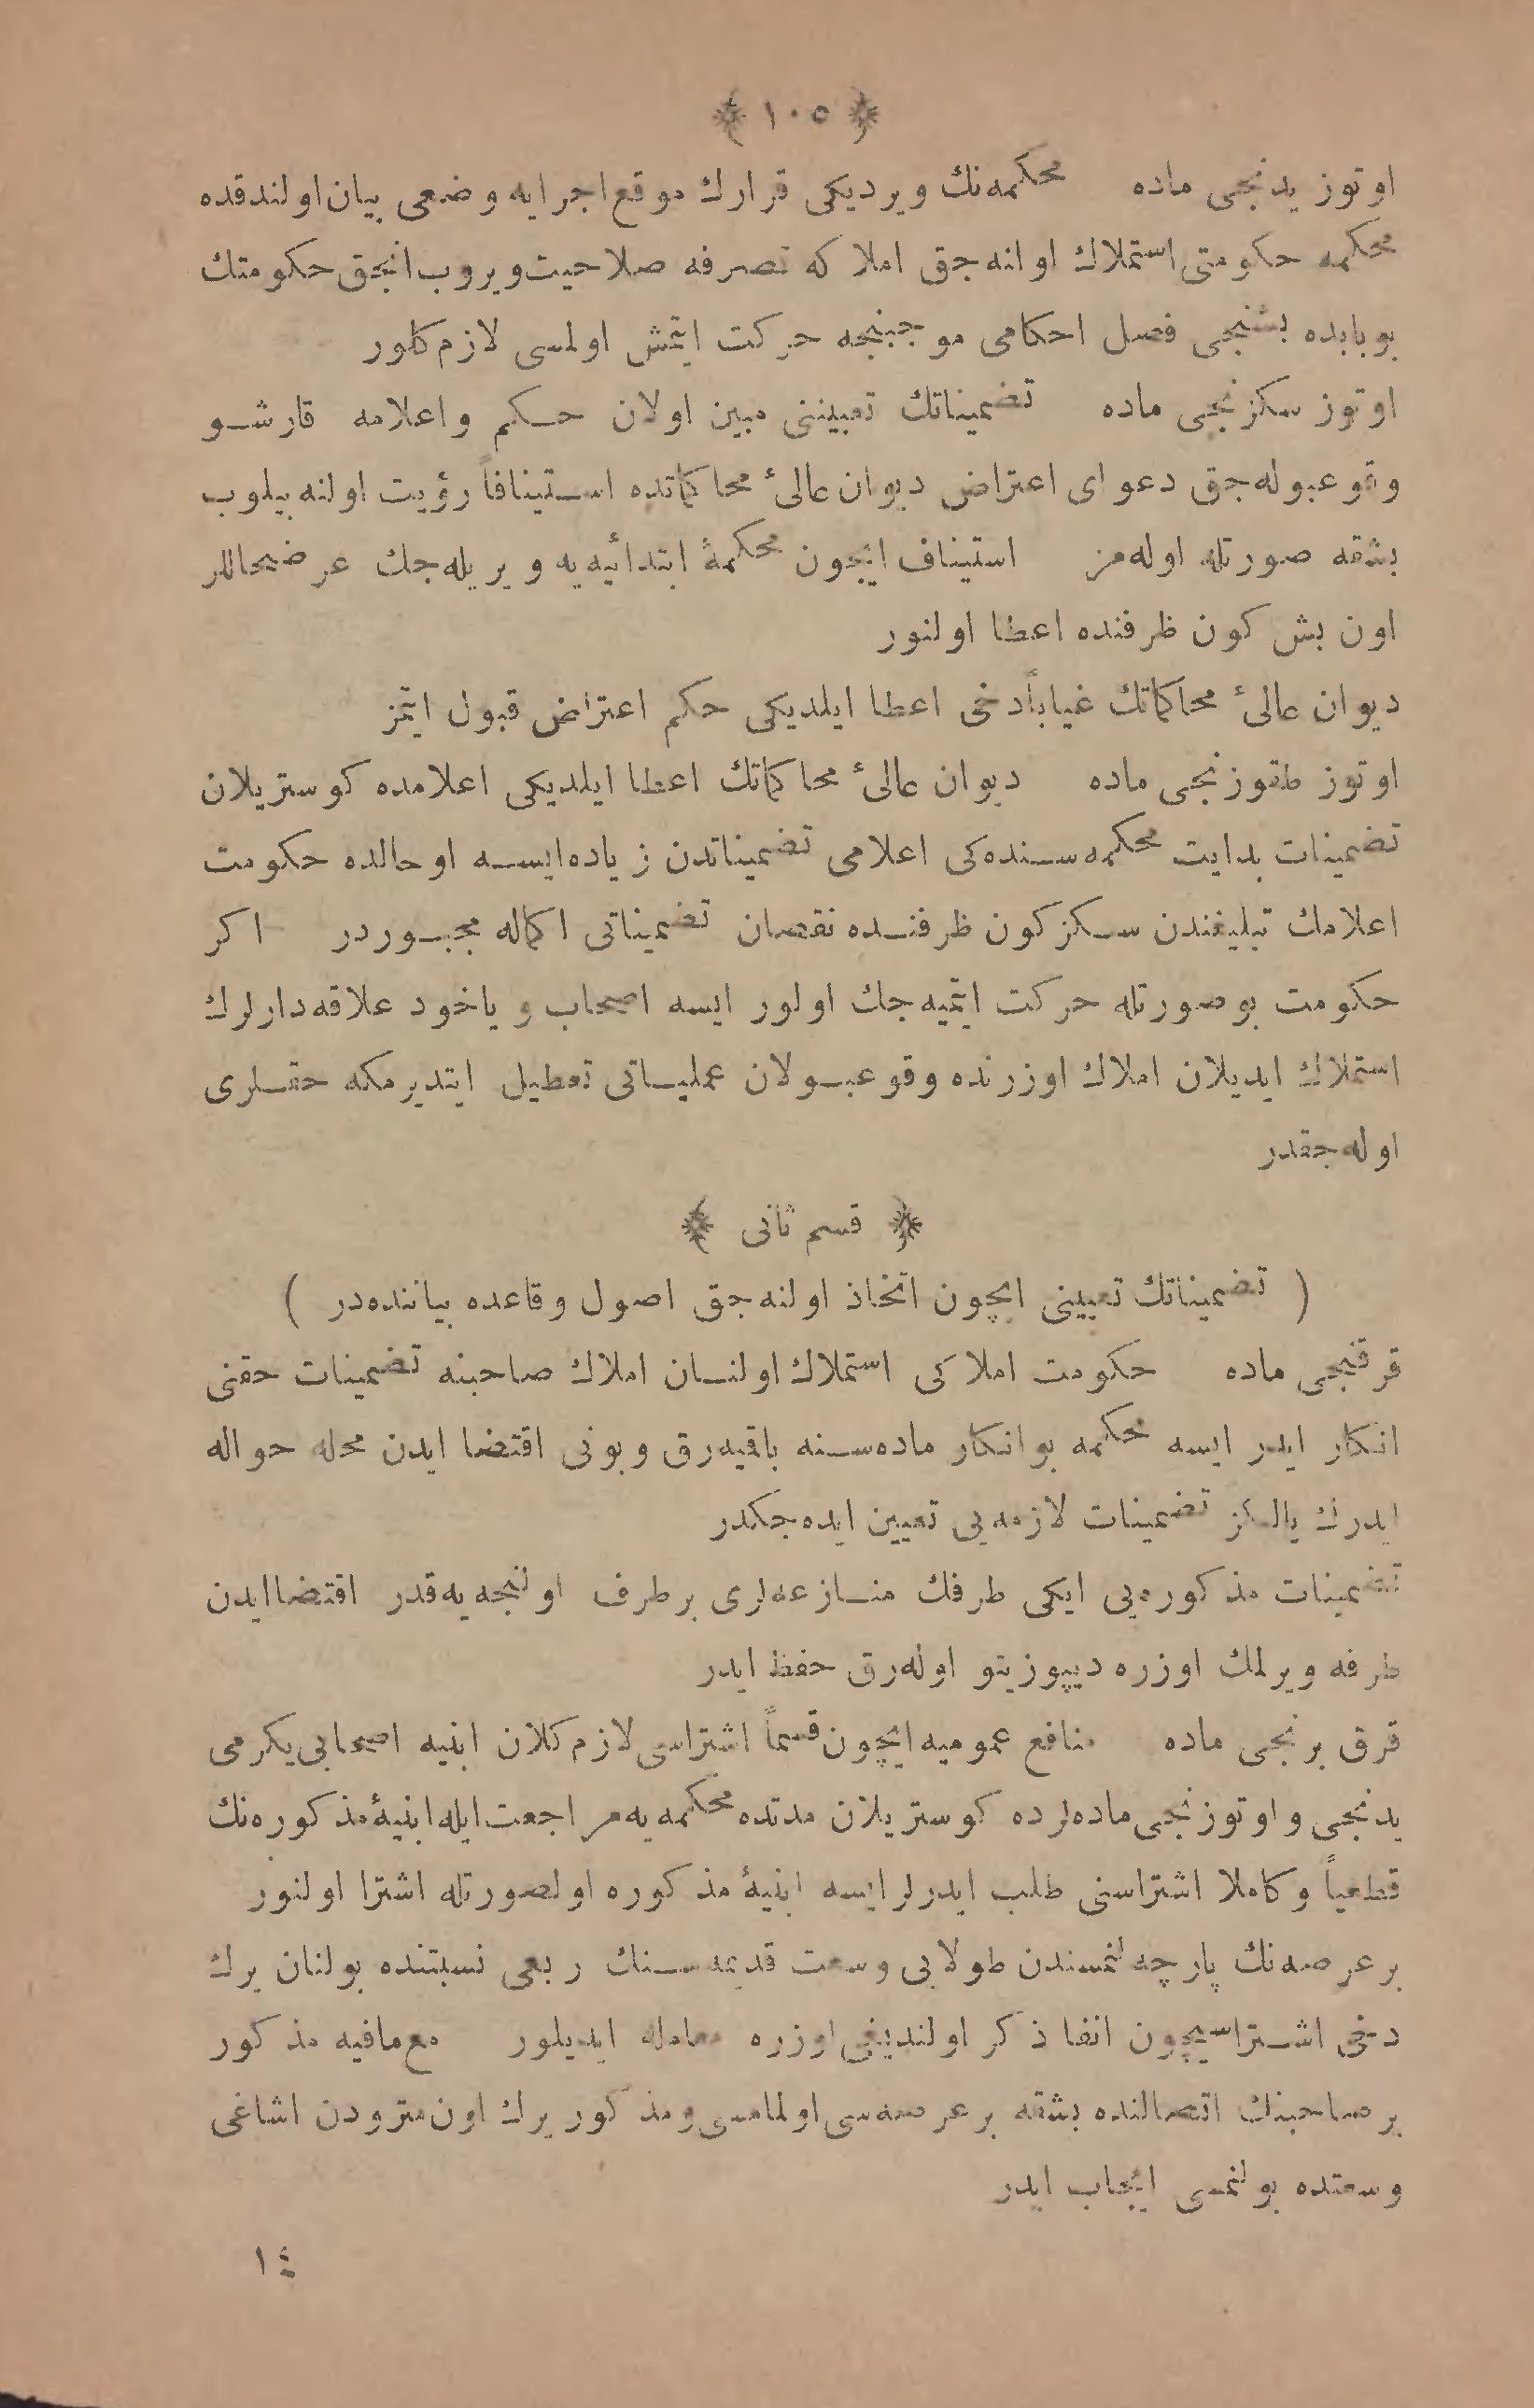 ﴿ ١٠٥ ﴾
اوتوز يدنجى ماده محكمه‌نك ويرديكى قرارك موقع اجرايه وضعى بيان اولندقده
محكمه حكومتى استملاك اولنه‌جق املاكه تصرفه صلاحيت ويروب انجق حكومتك
بوبابده بشنجى فصل احكامى موجبنجه حركت ايتمش اولمسى لازم كلور
اوتوز سكزنجى ماده تضميناتك تعييننى مبين اولان حكم واعلامه قارشو
وقوعبوله‌جق دعواى اعتراض ديوان عالئ محاكماتده استينافاً رؤيت اولنه بيلوب
بشقه صورتله اوله‌مز استيناف ايچون محكمۀ ابتدائيه‌يه ويريله‌جك عرضحاللر
اون بش كون ظرفنده اعطا اولنور
ديوان عالئ محاكماتك غياباً دخى اعطا ايلديكى حكم اعتراض قبول ايتمز
اوتوز طقوزنجى ماده ديوان عالئ محاكماتك اعطا ايلديكى اعلامده كوستريلان
تضمينات بدايت محكمه‌سنده‌كى اعلامى تضميناتدن زياده‌ايسه اوحالده حكومت
اعلامك تبليغندن سكز كون ظرفنده نقصان تضميناتى اكماله مجبوردر اكر
حكومت بوصورتله حركت ايتميه‌جك اولور ايسه اصحاب و ياخود علاقه‌دارلرك
استملاك ايديلان املاك اوزرنده وقوعبولان عملياتى تعطيل ايتديرمكه حقلرى
اوله‌جقدر
﴿ قسم ثانى ﴾
( تضميناتك تعيينى ايچون اتخاذ اولنه‌جق اصول وقاعده بياننده‌در )
قرقنجى ماده حكومت املاكى استملاك اولنان املاك صاحبنه تضمينات حقنى
انكار ايدر ايسه محكمه بوانكار ماده‌سنه باقيه‌رق وبونى اقتضا ايدن محله حواله
ايدرك يالكز تضمينات لازمه‌يى تعيين ايده‌جكدر
تضمينات مذكوره‌يى ايكى طرفك منازعه‌لرى برطرف اولنجه‌يه‌قدر اقتضاايدن
طرفه ويرلمك اوزره ديپوزيتو اوله‌رق حفظ ايدر
قرق برنجى ماده منافع عموميه ايچون قسماً اشتراسى لازم كلان ابنيه اصحابى يكرمى
يدنجى و اوتوزنجى ماده‌لرده كوستريلان مدتده محكمه‌يه‌مراجعت ايله ابنيۀ مذكوره‌نك
قطعياً وكاملا اشتراسنى طلب ايدرلرايسه ابنيۀ مذكوره اولصورتله اشترا اولنور
برعرصه‌نك پارچه‌لنمسندن طولايى وسعت قديمه‌سنك ربعى نسبتنده بولنان يرك
دخى اشتراسيچون انفا ذكر اولنديغى اوزره معامله ايديلور مع‌مافيه مذكور
ير صاحبنك اتصالنده بشقه برعرصه‌سى اولمامسى ومذكور يرك اون مترودن اشاغى
وسعتده بولنمسى ايجاب ايدر
١٤